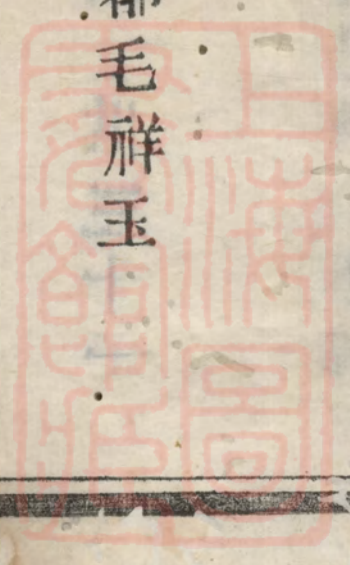 毛祥玉
上海圖
書館藏